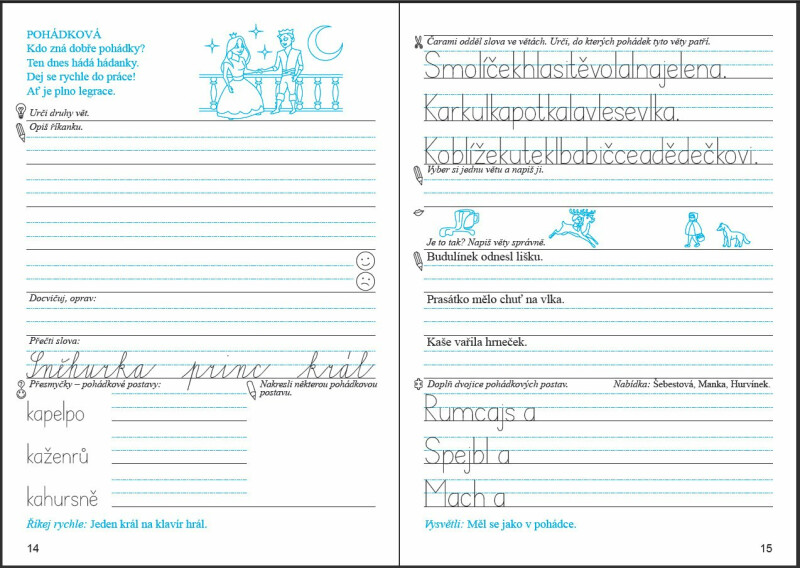 POHÁDKOVÁ
Kdo zná dobře pohádky?
Ten dnes hádá hádanky.
Dej se rychle do práce!
Ať je plno legrace.
Urči druhy vět.
Opiš říkanku.
Docvičuj, oprav:
Přečti slova:
Sněhurka princ král
Přesmyčky – pohádkové postavy:
Nakresli některou pohádkovou
postavu.
kapelpo
kaženrů
kahursně
Říkej rychle: Jeden král na klavír hrál.
14
Čarami odděl slova ve větách. Urči, do kterých pohádek tyto věty patří.
Smolíčekhlasitěvolalnajelena.
Karkulkapotkalavlesevlka.
Koblížekuteklbabičceadědečkovi.
Vyber si jednu větu a napiš ji.
Je to tak? Napiš věty správně.
Budulínek odnesl lišku.
Prasátko mělo chuť na vlka.
Kaše vařila hrneček.
Doplň dvojice pohádkových postav. Nabídka: Šebestová, Manka, Hurvínek.
Rumcajs a
Spejbl a
Mach a
Vysvětli: Měl se jako v pohádce.
15